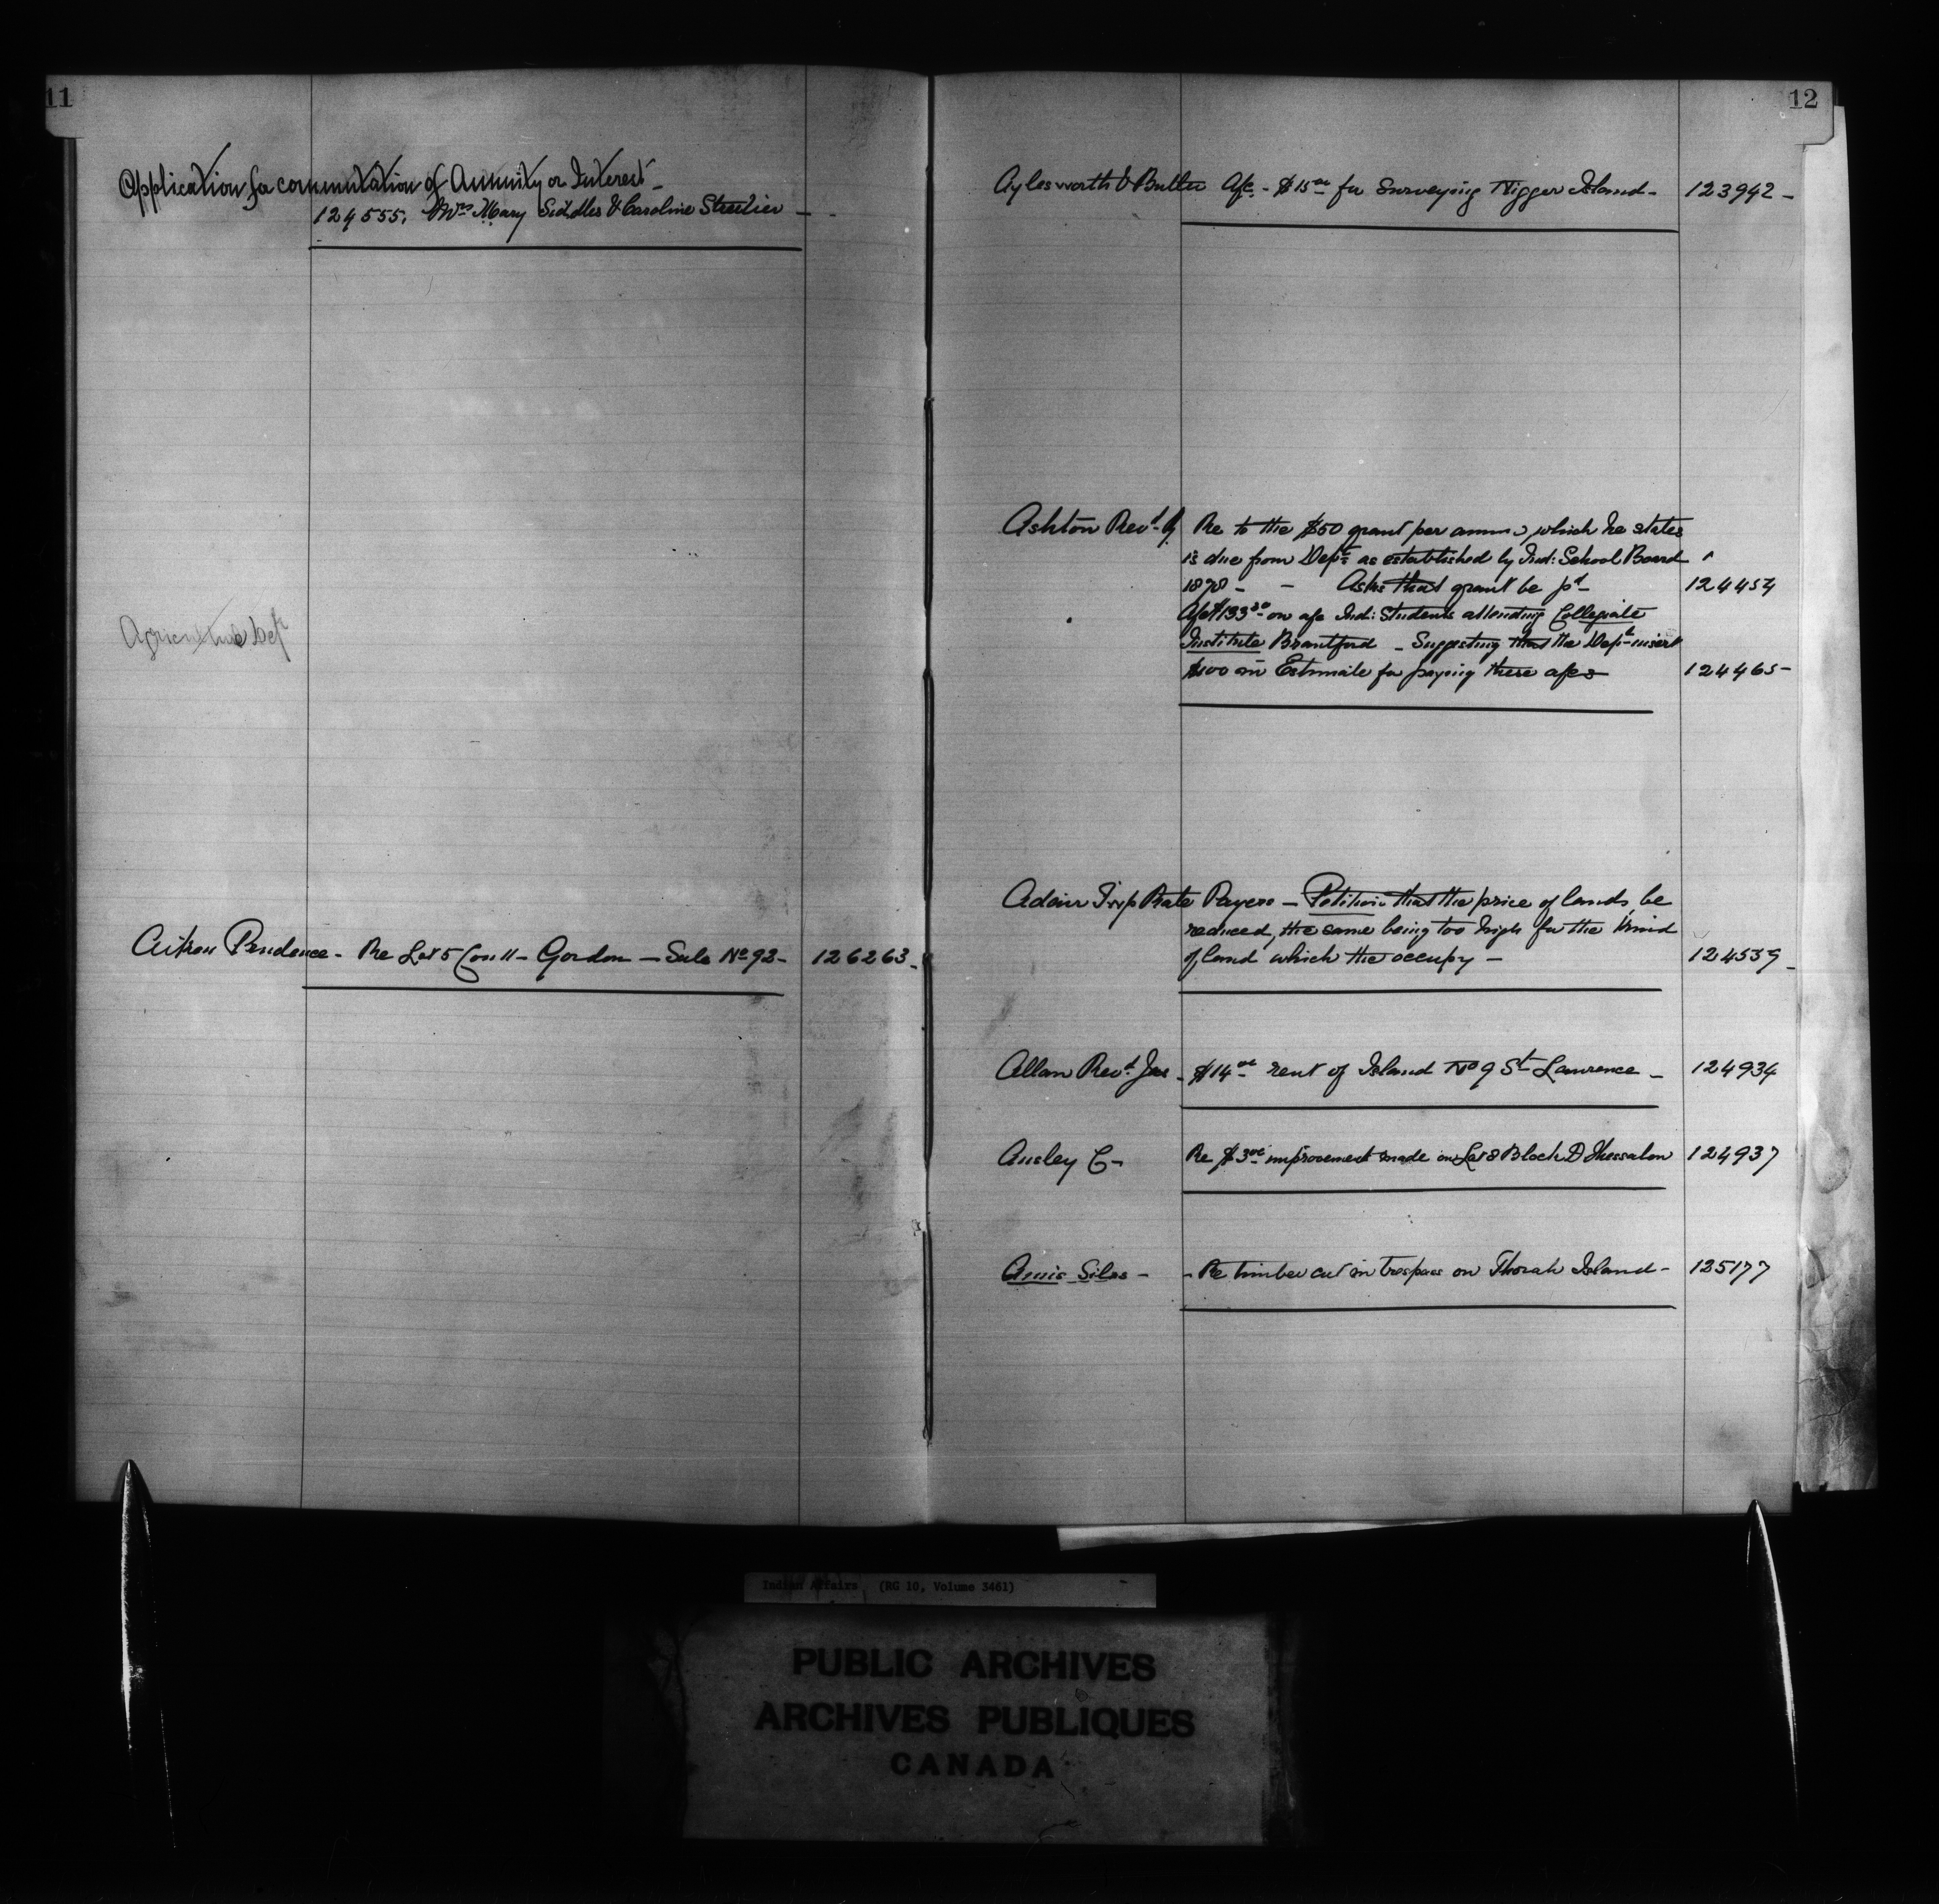 11
Application for commutation of Annuity or Interest -
124555, Mrs Mary Siddles & Caroline Streetier -
Agriculture Dept
Aitken Prudence - Re Lot 5 Con 11 - Gordon - Sale No 92 - 126263 -
12
Aylesworth & Butler Afc - $15 00 for Surveying Nigger Island - 123942 -
Ashton Revd R Re to the $50 grant per annum, which he states
is due from Dept as established by Ind: School Board
1878 - - Asks that grant be pd - 124454
Afc $133 30 on afc Ind: Students attending Collegiate
Institute Brantford - Suggesting that the Dept insert
$100 in Estimate for paying these afcs 124465 -
Adair Twp Rate Payers - Petition that the price of lands be
reduced, the same being too high for the kind
of land which the occupy - 124539 -
Allan Revd Jas - $14 00 rent of Island No 9 St Lawrence - 124934
Ansley C - Re $3 00 improvement made on Lot 8 Block D Thessalon 124937
Amis Silas - - Re timber cut in trespass on Thorah Island - 125177
Indian Affairs (RG 10, Volume 3461)
PUBLIC ARCHIVES
ARCHIVES PUBLIQUES
CANADA